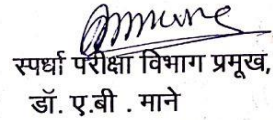 स्पर्धा परीक्षा विभाग प्रमूख,
डॉ. ए.बी . माने